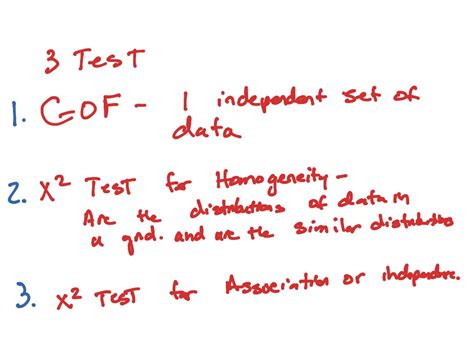 3 Test
1. GOF - 1 independent set of
data
2. X² Test for Homogeneity -
Are the distributions of data in
a and are the similar distributions
3. X² Test for Association or independence.